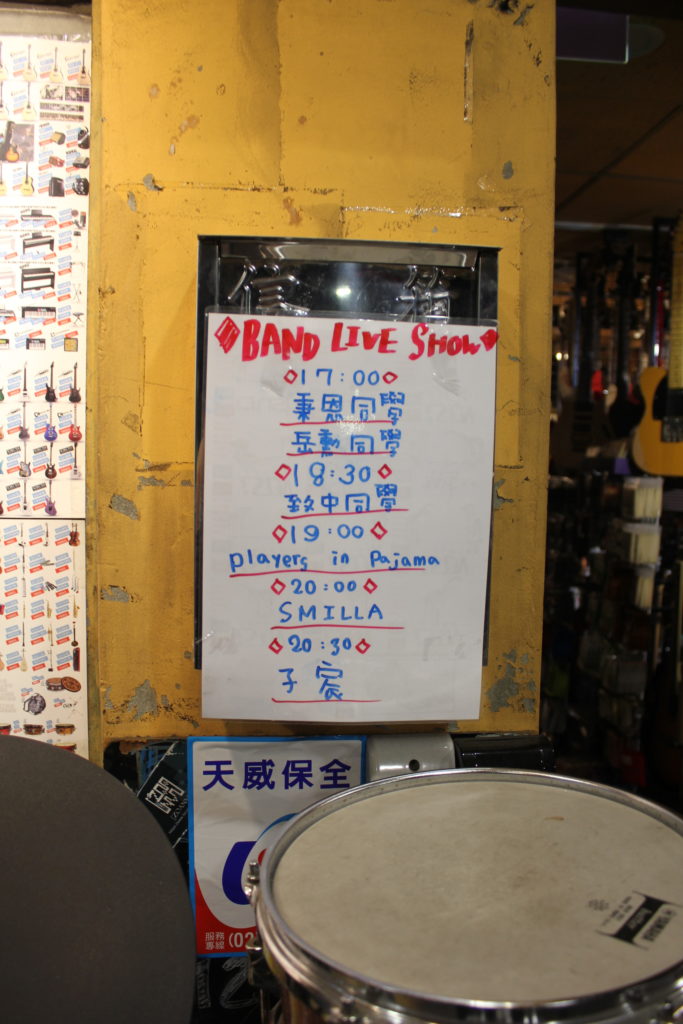 BAND LIVE SHOW
17:00
秉恩同學
岳勳同學
18:30
致中同學
19:00
players in Pajama
20:00
SMILLA
20:30
子宸
天威保全
服務
專線 (02
YAMAHA